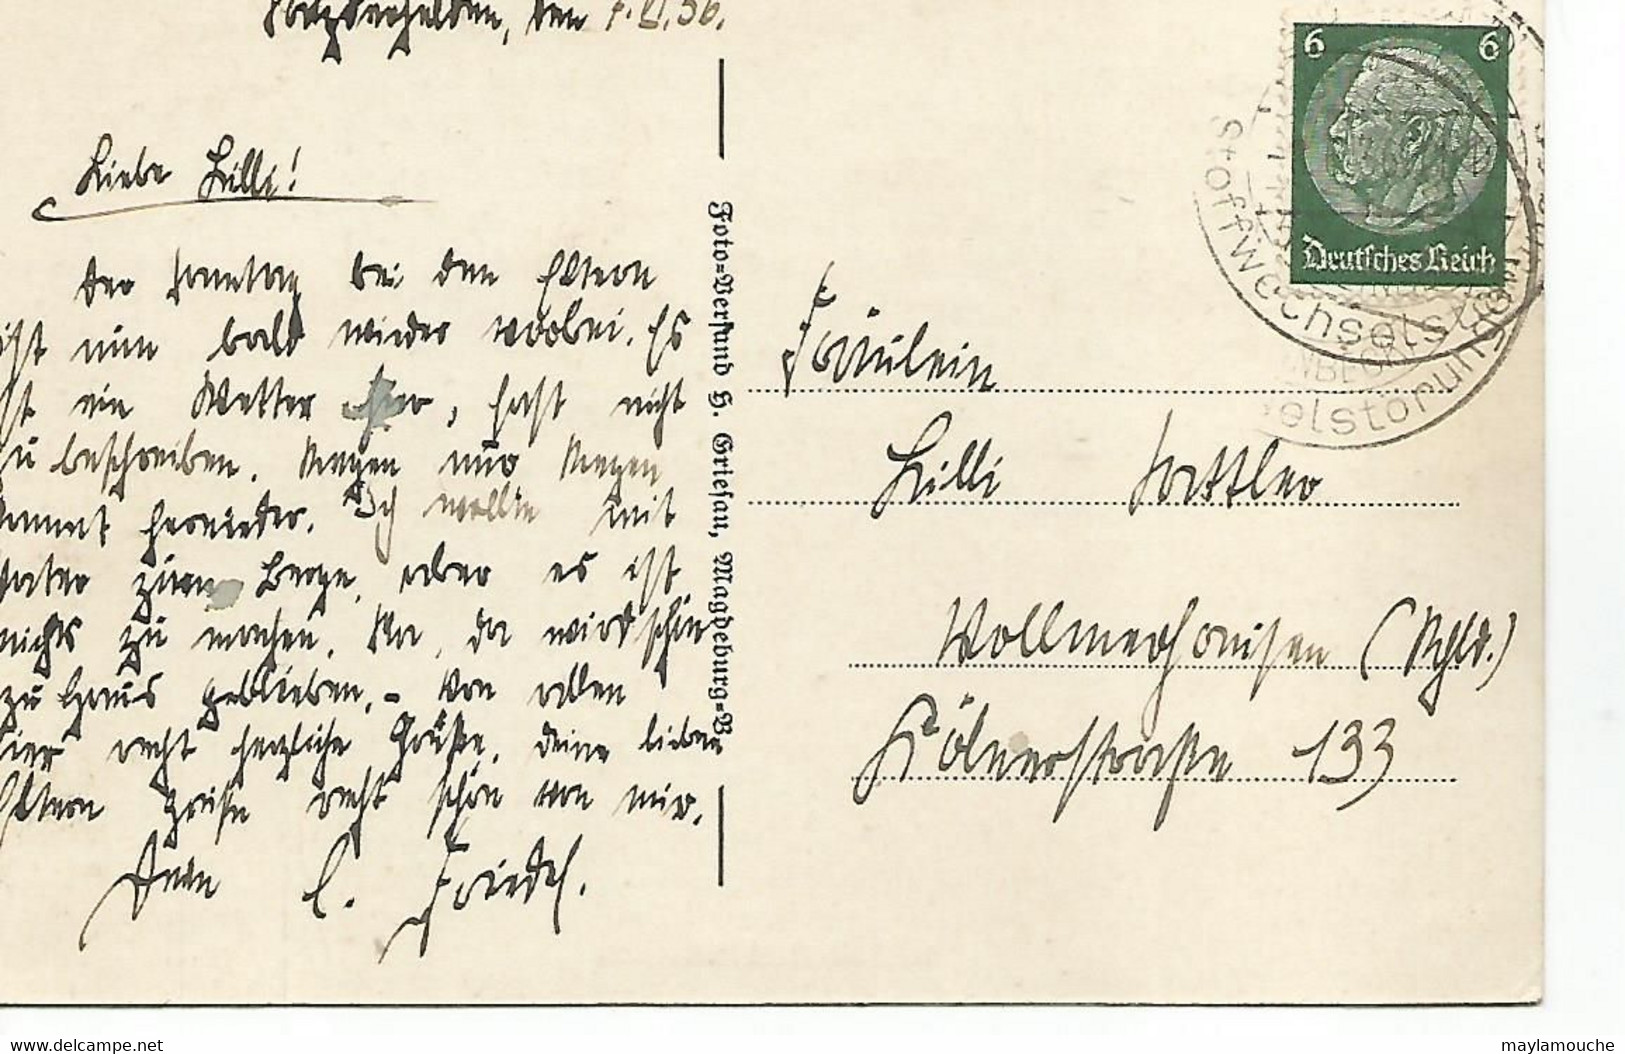 Salzderhelden, den 7.VI.36.
Liebe Lilli!
Der Sonntag bei den Eltern
ist nun bald wieder vorbei. Es
ist ein Wetter hier, fast nicht
zu beschreiben. Regen nur Regen
kommt hernieder. Ich wollte mit
Vater zum Berge, aber es ist
nichts zu machen. Na, da wird schön
zu Haus geblieben. – Von allen
hier recht herzliche Grüße, deine lieben
Eltern grüße recht schön von mir.
Dein E. Friedel.
Foto=Versand H. Griesau, Magdeburg=B
6 6
Deutsches Reich
Stoffwechselstörungen
elstörung
Fräulein
Lilli Sattler
Vollmerhausen (Rhld.)
Kölnerstraße 133
www.delcampe.net
maylamouche